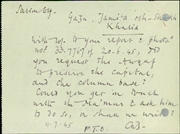 Gaza, Jami'a esh-
With ref. to your report & photo
no. 33.9767 of 20.6.45, Did
you request the Awqaf
to preserve the capitals
and the column bases?
Could you get in touch
with the Ma'mur & ask him
to do so, or shall we write?
4.7.45
P.T.O.